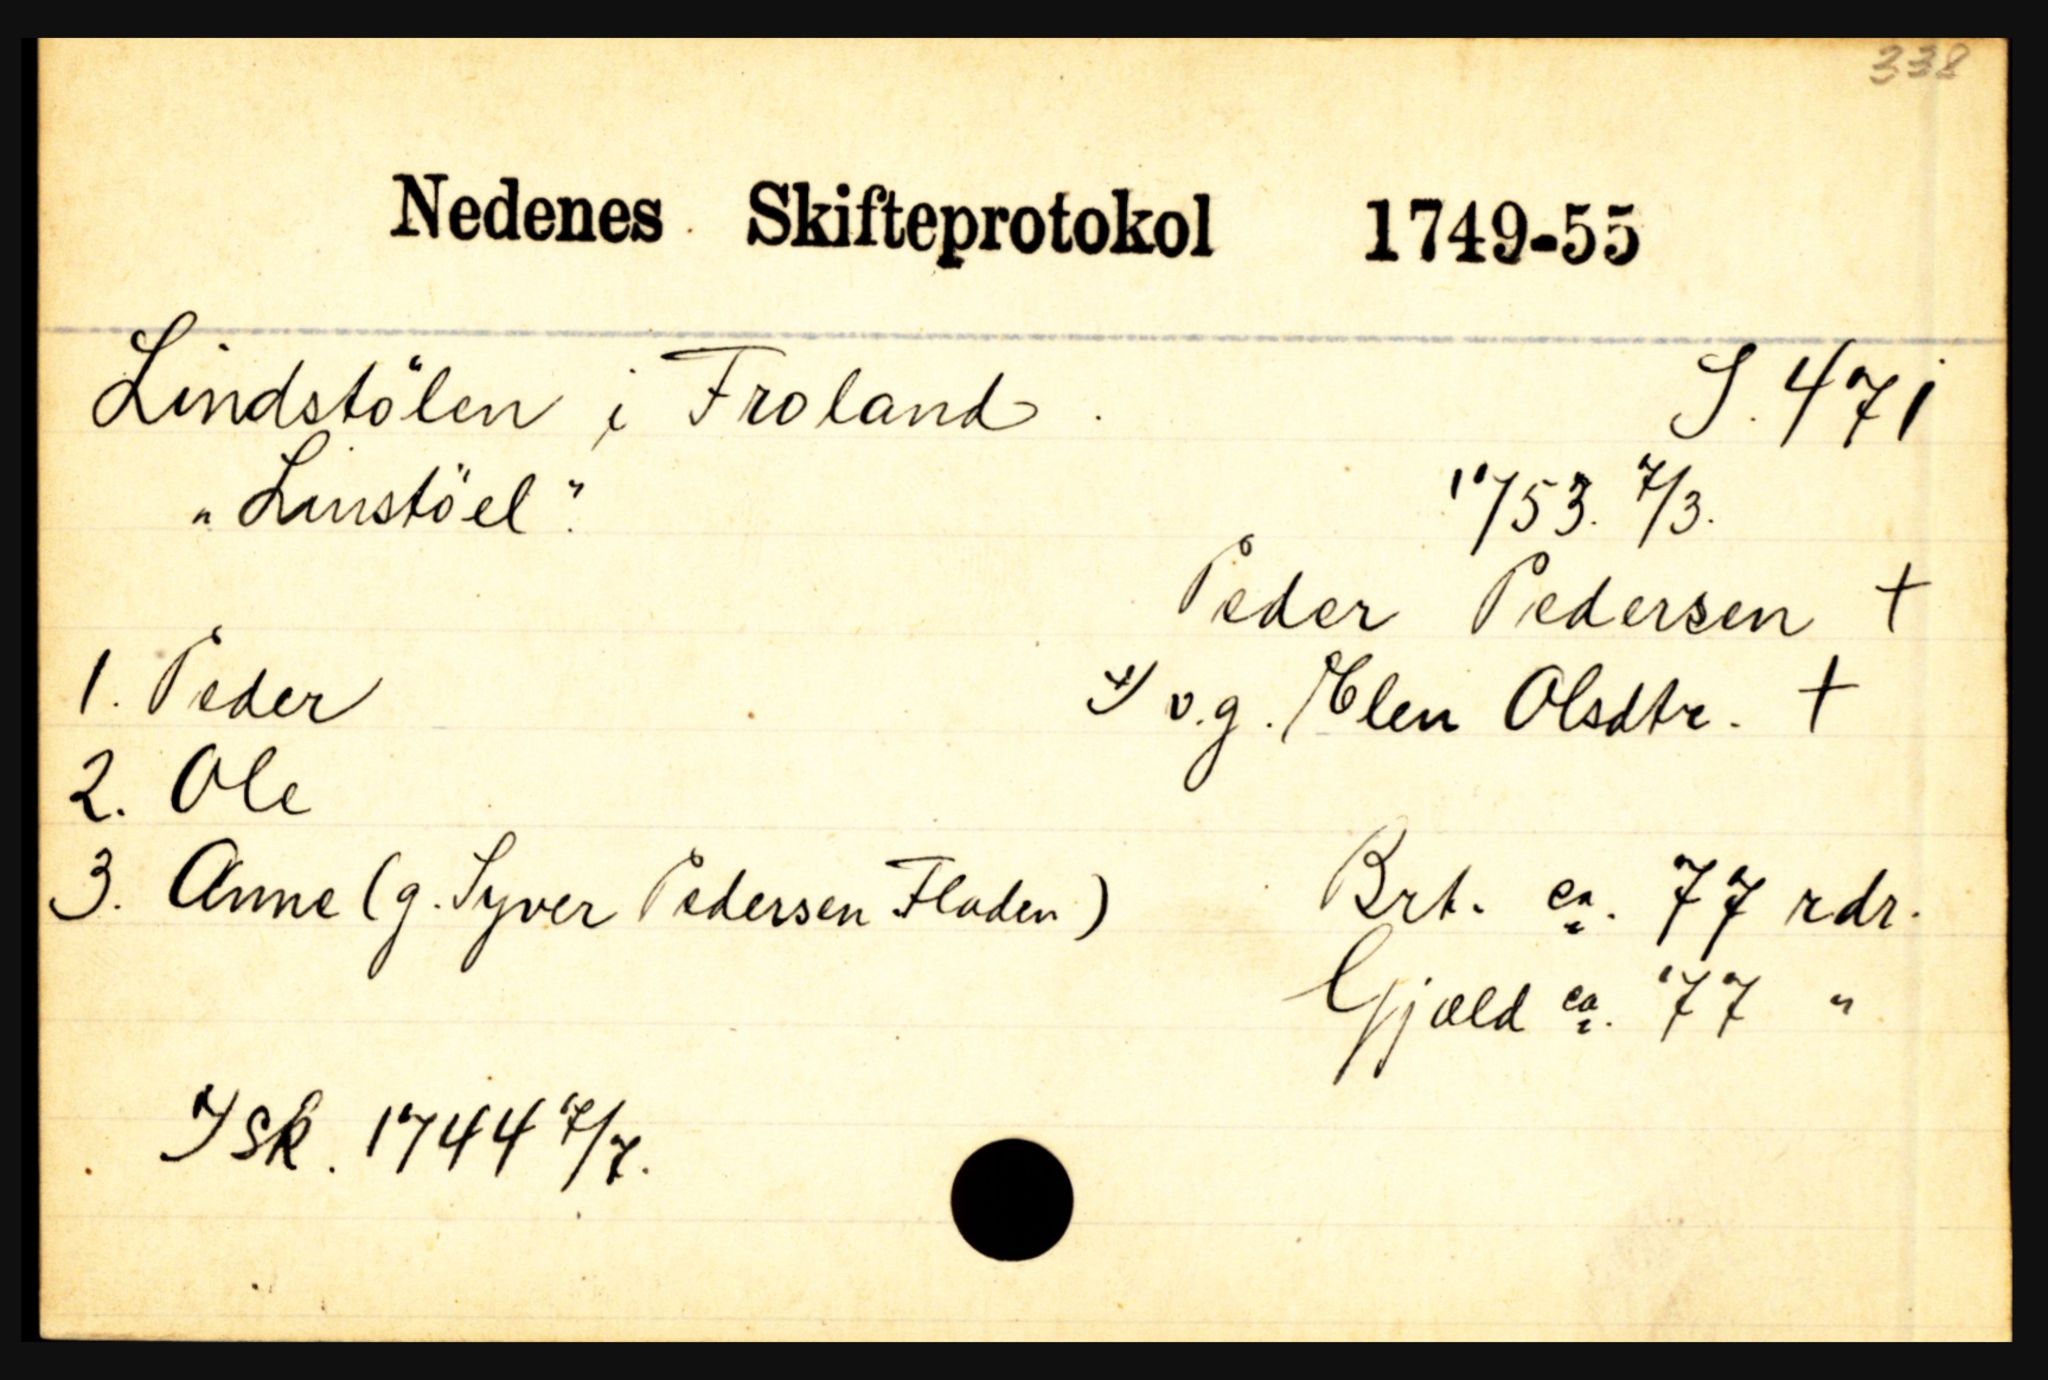 338
Nedenes Skifteprotokol 1749-55
Lindstölen i Froland. S. 471
"Linstöel". 1753. 7/3.
Peder Pedersen +
1. Peder *) v.g. Elen Olsdtr. +
2. Ole
3. Anne (g. Syver Pedersen Floden) Brt. ca. 77 rdr.
Gjæld ca. 77 "
*) sk. 1744 7/7.